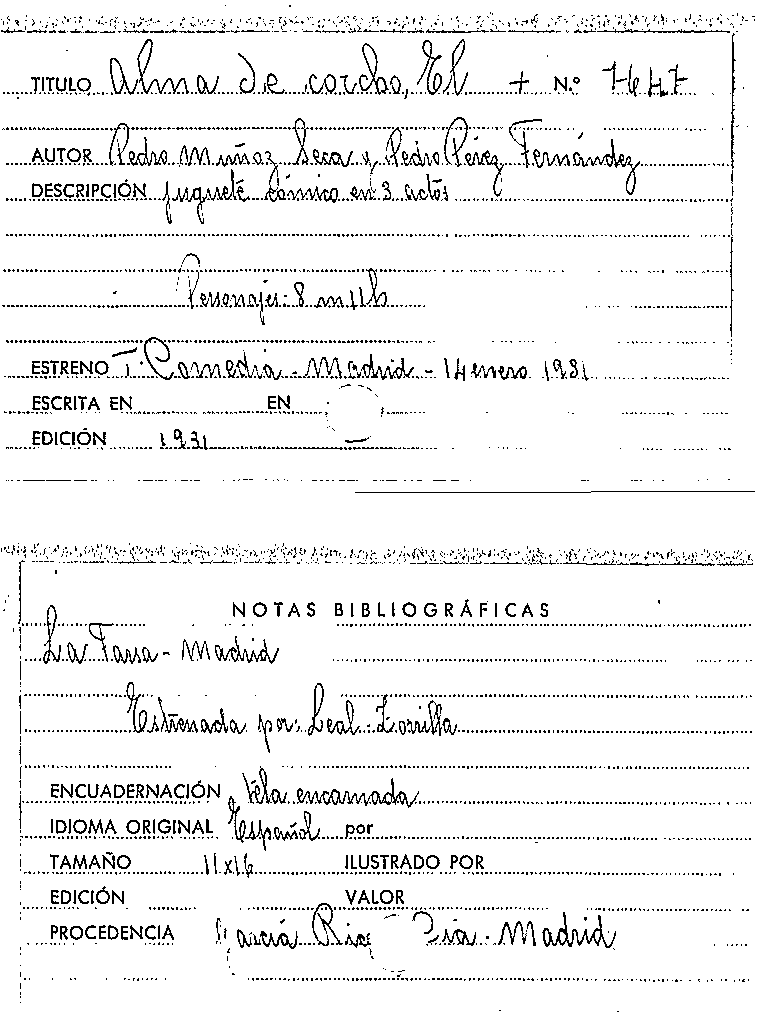 TITULO Alma de corcho, El + N.º 7647
AUTOR Pedro Muñoz Seca y Pedro Pérez Fernández
DESCRIPCIÓN juguete cómico en 3 actos
Personajes: 8 m 11 h
ESTRENO T. Comedia - Madrid - 14 enero 1931
ESCRITA EN EN
EDICIÓN 1931
NOTAS BIBLIOGRÁFICAS
La Farsa - Madrid
Estrenada por: Leal - Zorrilla
ENCUADERNACIÓN Tela encarnada
IDIOMA ORIGINAL Español por
TAMAÑO 11x16 ILUSTRADO POR
EDICIÓN VALOR
PROCEDENCIA García Rico - Madrid